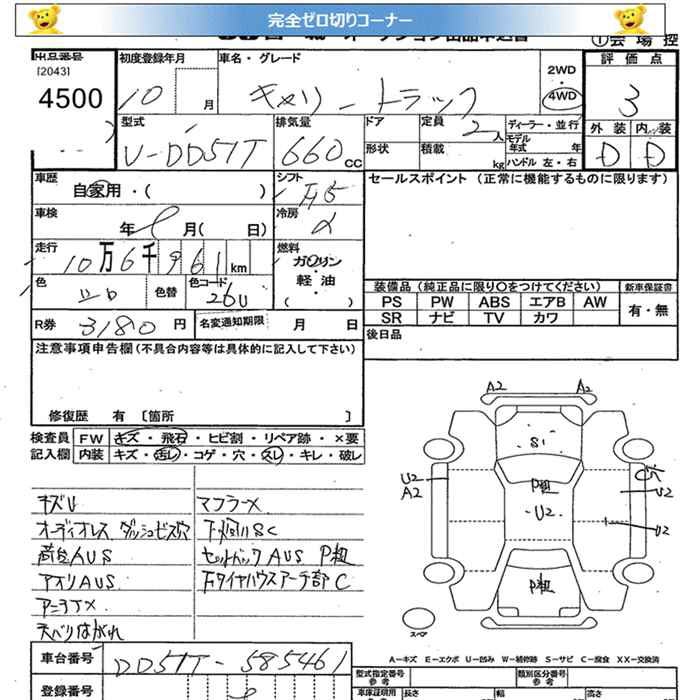 完全ゼロ切りコーナー
①会場控
出品番号
[2043]
4500
初度登録年月
10 月
車名・グレード
キャリートラック
2WD
・
4WD
評価点
3
外装 内装
D D
型式
V-DD51T
排気量
660cc
ドア
形状
定員
2人
積載 kg
ディーラー・並行
モデル年式 年
ハンドル 左・右
車歴
自家用・( )
シフト
F5
車検
年 月( 日)
冷房
セールスポイント (正常に機能するものに限ります)
走行
10万6千961km
燃料
ガソリン
・
軽・油
( )
色
シロ
色替
色コード
26U
装備品(純正品に限り○をつけてください)
新車保証書
PS PW ABS エアB AW
SR ナビ TV カワ
有・無
R券 3180円
名変通知期限 月 日
後日品
注意事項申告欄(不具合内容等は具体的に記入して下さい)
修復歴 有 [箇所 ]
検査員記入欄
FW キズ・飛石・ヒビ割・リペア跡・×要
内装 キズ・汚レ・コゲ・穴・スレ・キレ・破レ
キズU
マフラーX
オーディオレス ダッシュビス穴
下廻りSC
荷台AUS
セットバックAUS P粗
アオリAUS
左タイヤハウスアーチ部C
アンテナX
天ベリはがれ
A2 A2
S1
P粗
U2
U2
A2
U2
U2
P粗
スペア
A-キズ E-エクボ U-凹み W-補修跡 S-サビ C-腐食 XX-交換済
車台番号
DD51T-585461
登録番号
型式指定番号
参考
類別区分番号
参考
車庫証明用
参考
長さ 幅 高さ